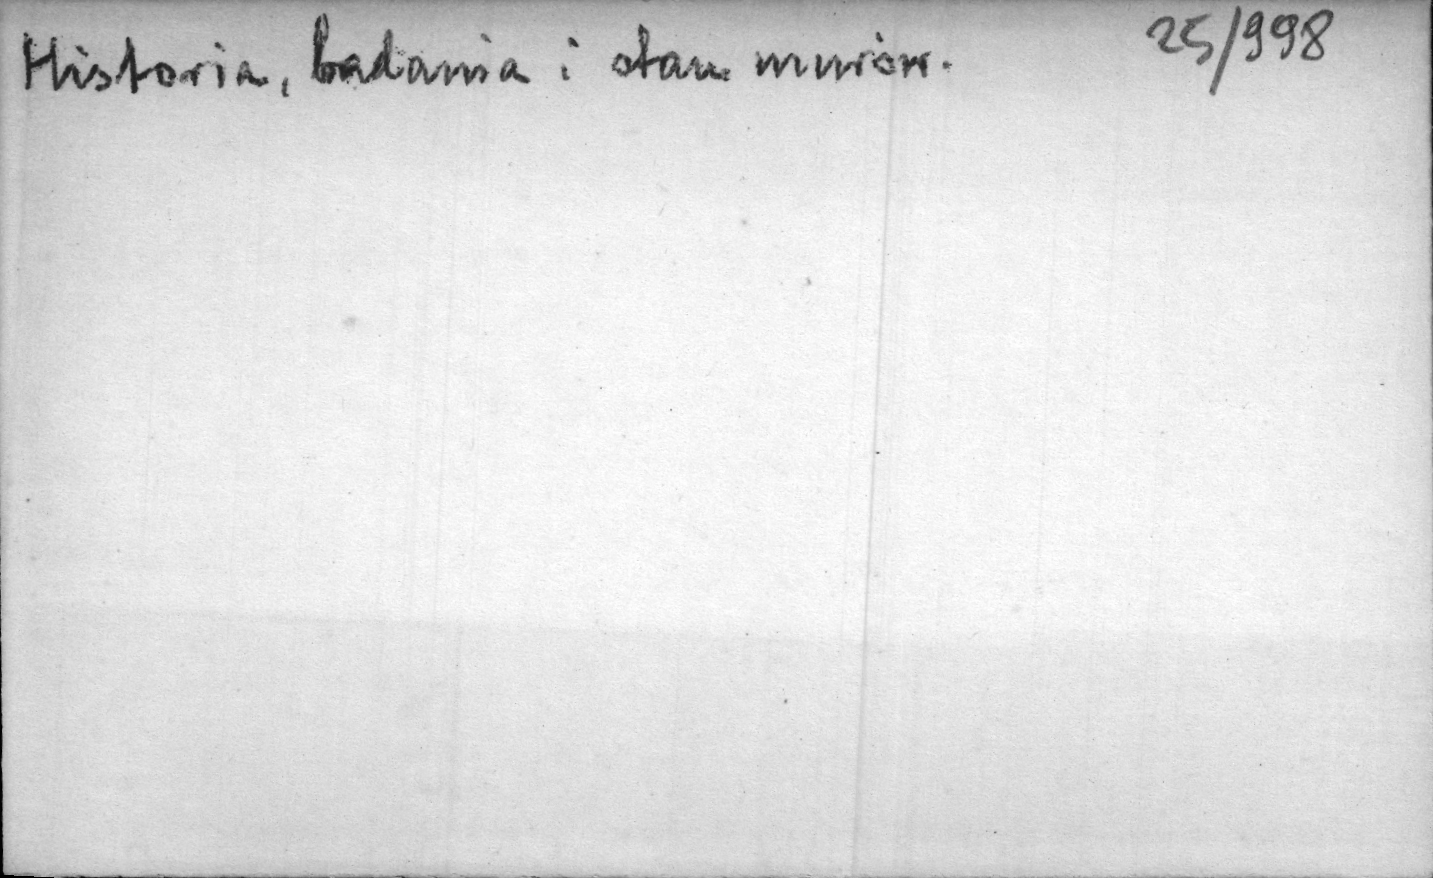 Historia, badania i stan murów. 25/998